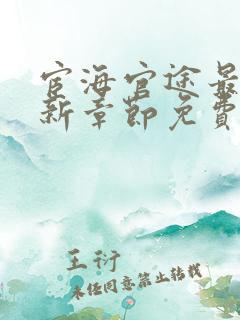 宦海官途最
新章節免費
王衍
未经同意禁止转载